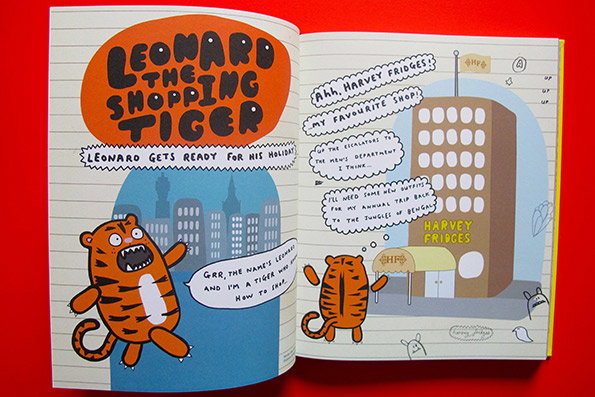 LEONARD
THE
SHOPPING
TIGER
LEONARD GETS READY FOR HIS HOLIDAY
GRR, THE NAME'S LEONARD
AND I'M A TIGER WHO
HOW TO SHOP...
AHH, HARVEY FRIDGES!
MY FAVOURITE SHOP!
UP THE ESCALATORS TO
THE MEN'S DEPARTMENT
I THINK...
I'LL NEED SOME NEW OUTFITS
FOR MY ANNUAL TRIP BACK
TO THE JUNGLES OF BENGAL
HF
UP
UP
UP
HARVEY
FRIDGES
HF
harvey fridges